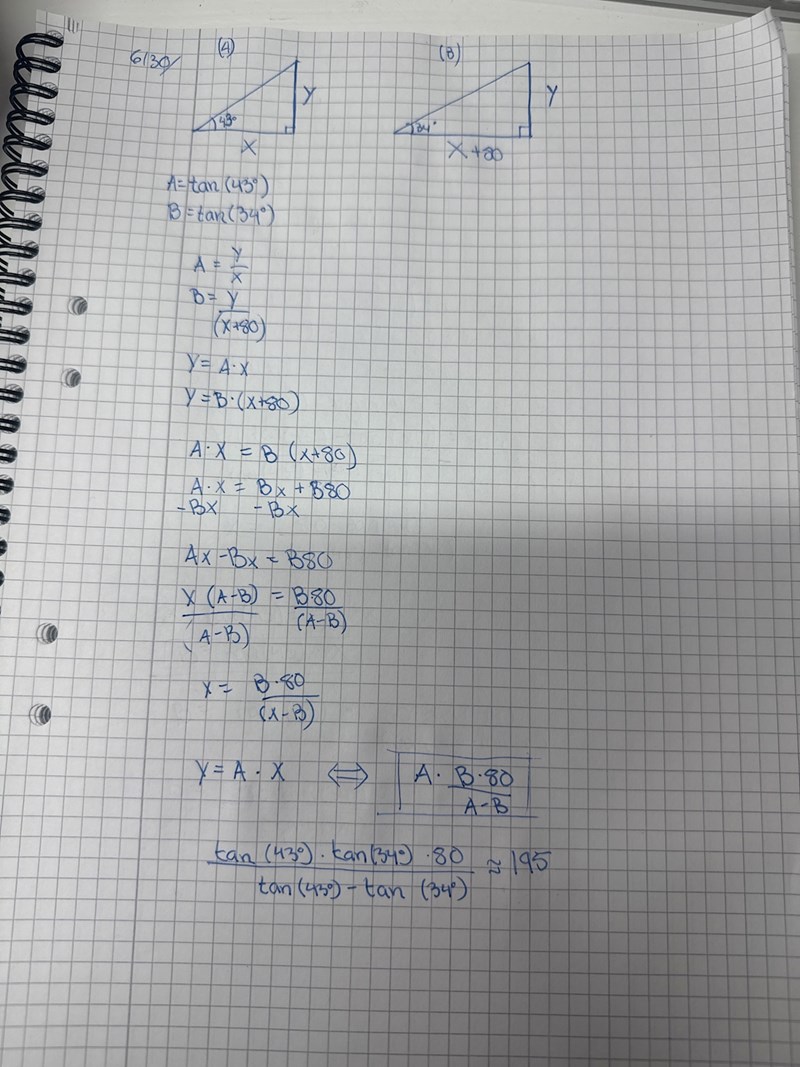 6130/
(A)
(B)
43°
Y
X
34°
Y
X+80
A=tan(43°)
B=tan(34°)
A = Y/X
B= Y/(X+80)
Y= A·X
Y=B·(X+80)
A·X = B (X+80)
A·X = Bx + B80
-BX -BX
Ax -Bx = B80
X (A-B)/(A-B) = B80/(A-B)
X = B·80/(X-B)
Y=A·X ⟺ A· B·80/A-B
tan (43°) · tan(34°) ·80/tan(43°)-tan (34°) ≈195